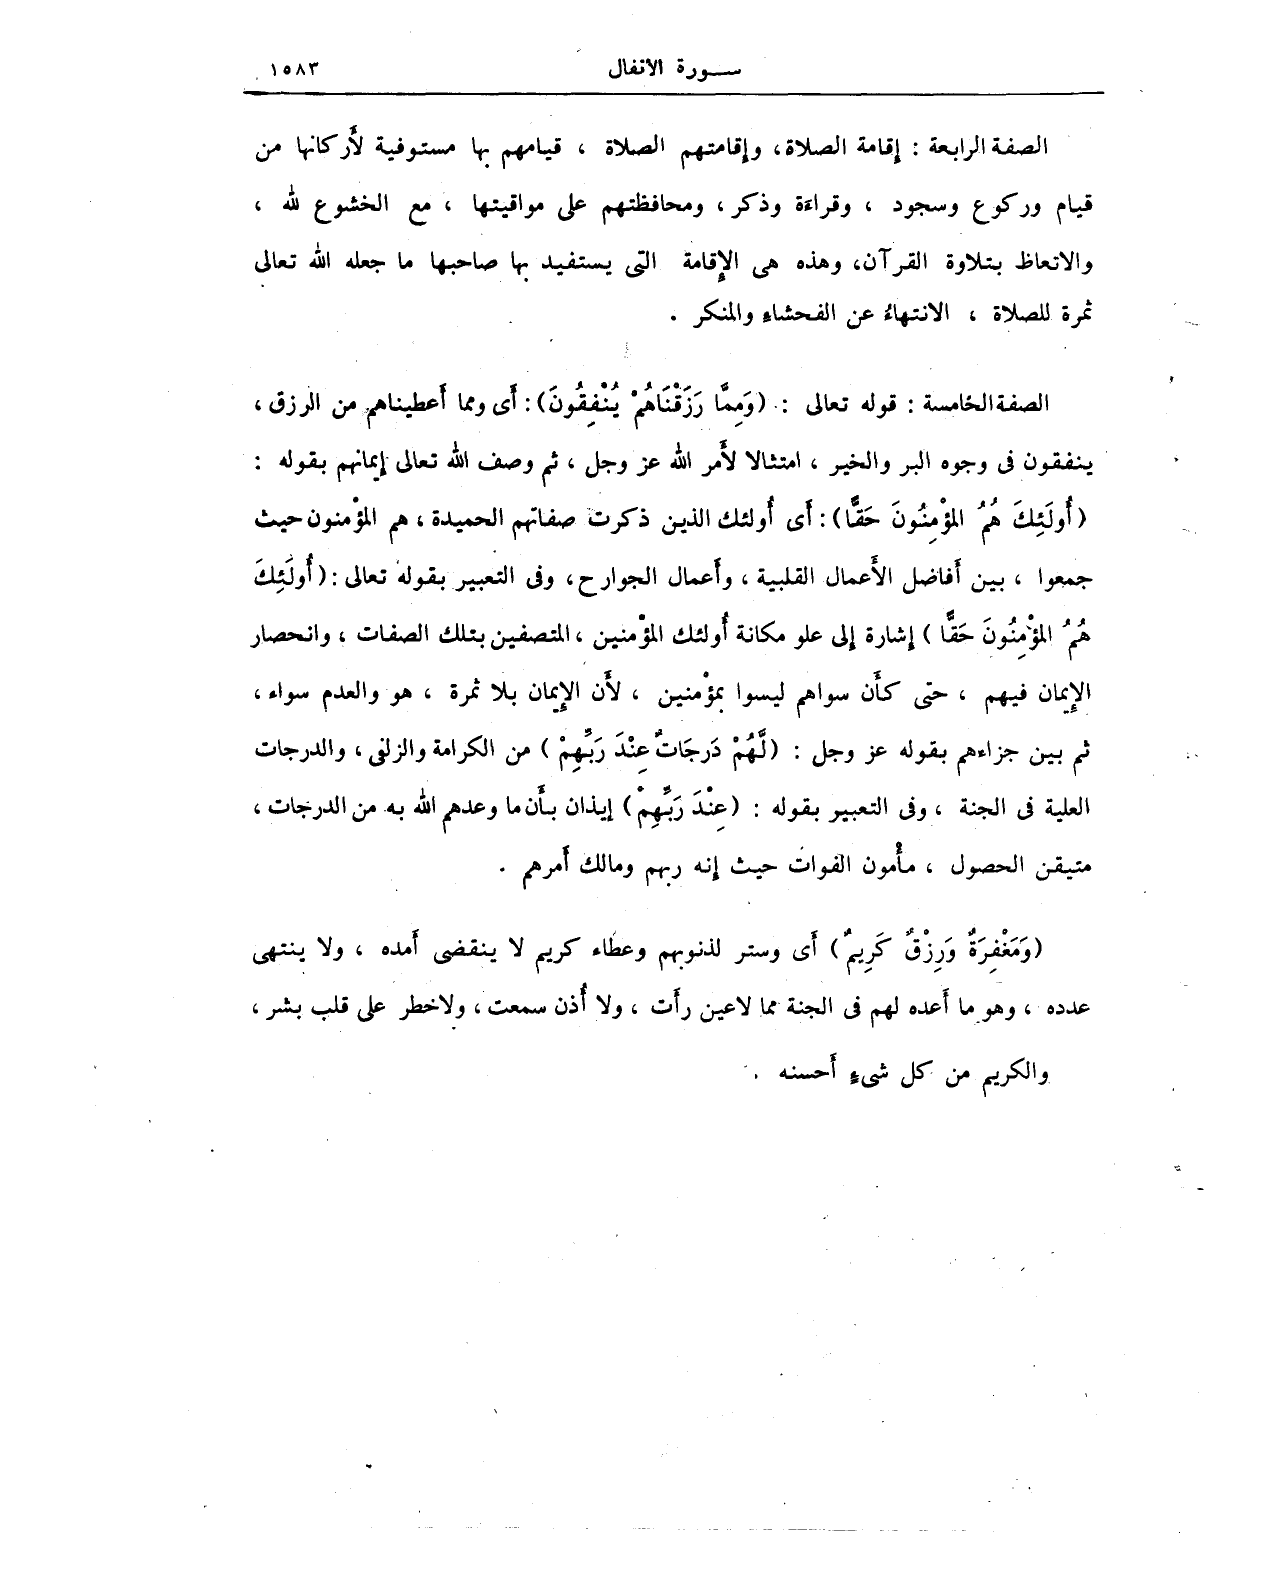 سورة الأنفال ١٥٨٣
الصفة الرابعة : إقامة الصلاة، وإقامتهم الصلاة ، قيامهم بها مستوفية لأركانها من
قيام وركوع وسجود ، وقراءة وذكر ، ومحافظتهم على مواقيتها ، مع الخشوع لله ،
والاتعاظ بتلاوة القرآن، وهذه هى الإقامة التى يستفيد بها صاحبها ما جعله الله تعالى
ثمرة للصلاة ، الانتهاءُ عن الفحشاءِ والمنكر .
الصفة الخامسة : قوله تعالى : (وَمِمَّا رَزَقْنَاهُمْ يُنْفِقُونَ) : أَى ومما أَعطيناهم من الرزق ،
ينفقون فى وجوه البر والخير ، امتثالا لأَمر الله عز وجل ، ثم وصف الله تعالى إيمانهم بقوله :
(أُولَئِكَ هُمُ المُؤْمِنُونَ حَقًّا) : أَى أُولئك الذين ذكرت صفاتهم الحميدة ، هم المؤْمنون حيث
جمعوا ، بين أَفاضل الأَعمال القلبية ، وأَعمال الجوارح ، وفى التعبير بقوله تعالى : (أُولَئِكَ
هُمُ المُؤْمِنُونَ حَقًّا ) إشارة إلى علو مكانة أُولئك المؤْمنين ، المتصفين بتلك الصفات ، وانحصار
الإِيمان فيهم ، حتى كأَن سواهم ليسوا بمؤْمنين ، لأَن الإِيمان بلا ثمرة ، هو والعدم سواء ،
ثم بين جزاءهم بقوله عز وجل : (لَّهُمْ دَرجَاتٌ عِنْدَ رَبِّهِمْ ) من الكرامة والزلفى ، والدرجات
العلية فى الجنة ، وفى التعبير بقوله : (عِنْدَ رَبِّهِمْ ) إيذان بأَن ما وعدهم الله به من الدرجات ،
متيقن الحصول ، مأْمون الفوات حيث إنه ربهم ومالك أَمرهم .
(وَمَغْفِرَةٌ وَرِزْقٌ كَرِيمٌ) أَى وستر لذنوبهم وعطاء كريم لا ينقضى أَمده ، ولا ينتهى
عدده ، وهو ما أَعده لهم فى الجنة مما لاعين رأَت ، ولا أُذن سمعت ، ولاخطر على قلب بشر ،
والكريم من كل شىءٍ أَحسنه .